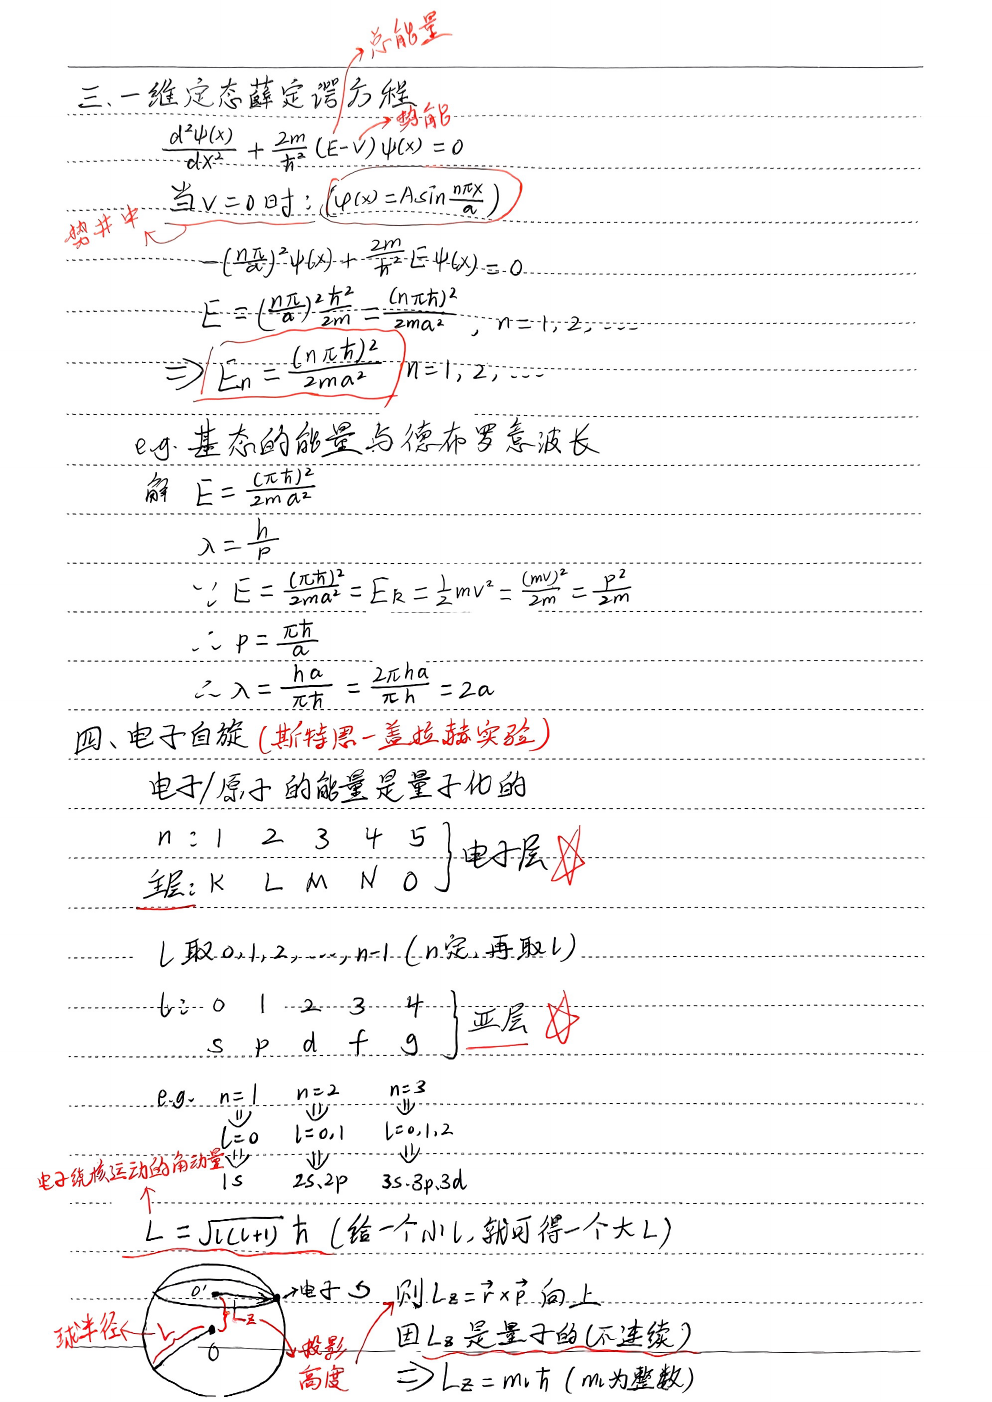 总能量
三、一维定态薛定谔方程
势能
d²ψ(x)/dx² + 2m/ħ² (E-V) ψ(x) = 0
当 V = 0 时: (ψ(x) = A sin nπx/a)
势井中
-(nπ/a)² ψ(x) + 2m/ħ² E ψ(x) = 0
E = (nπ/a)² ħ²/2m = (nπħ)²/2ma² , n = 1, 2, ...
⇒ En = (nπħ)²/2ma² n = 1, 2, ...
e.g. 基态的能量与德布罗意波长
解 E = (πħ)²/2ma²
λ = h/p
∵ E = (πħ)²/2ma² = Ek = ½mv² = (mv)²/2m = p²/2m
∴ p = πħ/a
∴ λ = ha/πħ = 2πha/πh = 2a
四、电子自旋 (斯特恩-盖拉赫实验)
电子/原子的能量是量子化的
n: 1 2 3 4 5
主层: K L M N O
电子层
l 取 0, 1, 2, ..., n-1 (n定, 再取 l)
l: 0 1 2 3 4
s p d f g
亚层
e.g. n=1 n=2 n=3
⇓ ⇓ ⇓
l=0 l=0,1 l=0,1,2
⇓ ⇓ ⇓
1s 2s.2p 3s.3p.3d
电子绕核运动的角动量
L = √l(l+1) ħ (给一个小l, 就可得一个大L)
O' Lz → 电子
球半径 L O
投影高度
则 Lz = r⃗ × p⃗ 向上
因 Lz 是量子的 (不连续)
⇒ Lz = ml ħ (ml 为整数)